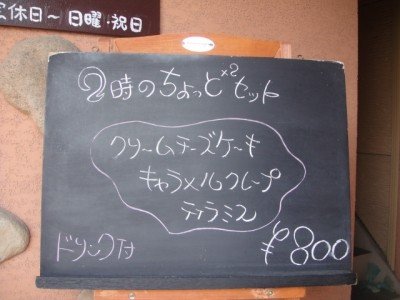 定休日～日曜・祝日
②時のちょっと×2セット
クリームチーズケーキ
キャラメルクレープ
ティラミス
ドリンク付
¥800